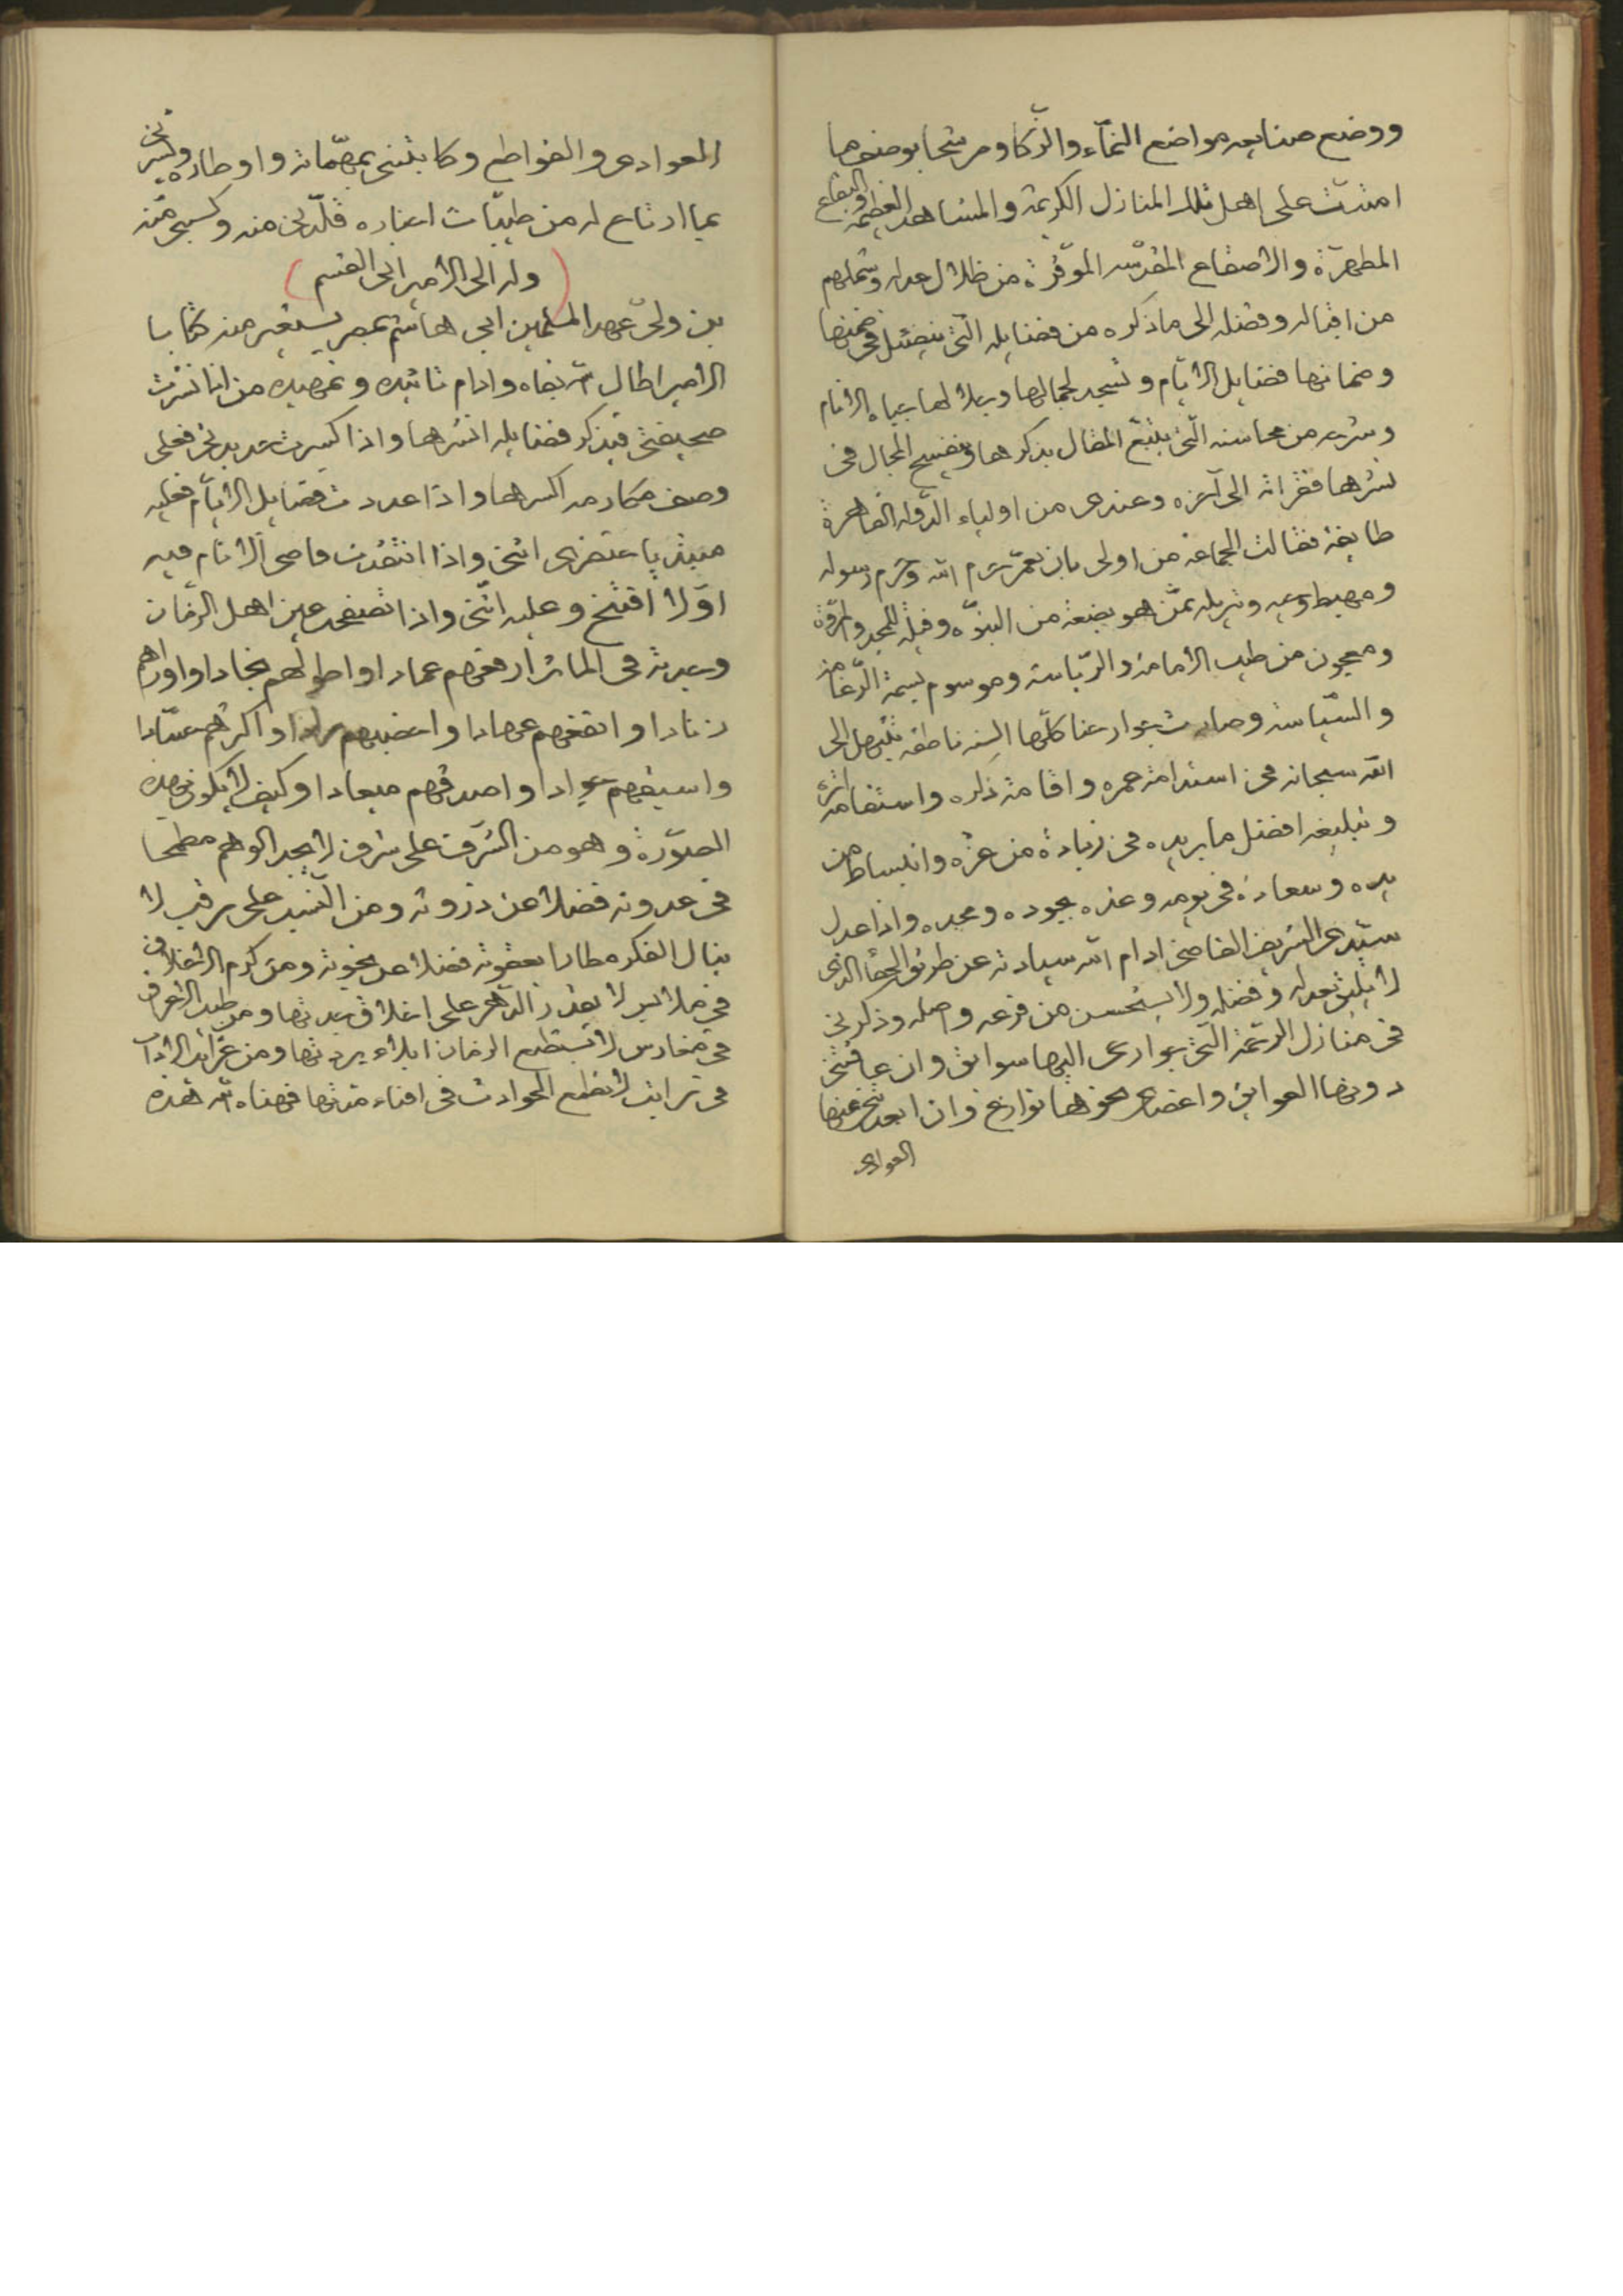 ووضع صنايعه مواضع النمآء والزّكا ومرشحا بوضعها
امتدت على اهل تلك المنازل الكريمة والمشاهد العظيمة والبقاع
المطهرّة والاصقاع المقدّسه الموقّرة من ظلال عدله وشملهم
من اقباله وفضله الى ما ذكره من فضايله الّتى فى ضمنها
وضمانها فضايل الايّام وتسجد لجمالها وجلالها جباه الانام
وشرحه من محاسنه الّتى المقال بذكرها ويفسح المجال فى
نشرها فقرات الى آخره وعندى من اولياء الدّوله القاهرة
طايفة فقالت الجماعة من اولى بان يعمّر حرم الله وحرم رسوله
ومهبط وحيه وتنزيله ممّن هو بضعة من النبوّه وقبلة للمجد والمروّة
ومعجون من طيب الامامة والرّياسة وموسوم بسمة الزّعامة
والسّياسة وصارت جوارحنا كلّها السنه ناطقه تبتهل الى
الله سبحانه فى استدامة عمره واقامة واستقامة امره
وتبليغه افضل ما يريده فى زيادة من عزّه وانبساط من
يده وسعادة فى يومه وغده بجوده ومجده واذا عدل
سيّدى الشريف القاضى ادام الله سيادته عن طريق الجفا الّذى
لا يليق بعدله وفضله ولا يستحسن من فرعه واصله وذكرنى
فى منازل الرّحمة الّتى جوارحى اليها سوابق وان عاقتنى
دونها العوايق واعضاى نحوها نوازع وان ابعدتنى عنها
العوادى
العوادى والقواطع وكاتبنى بمهمّاته واوطاره وبشّرنى
بما ارتاح له من طيّبات اخباره قلّدنى منه وكسبى منّه
(وله الى الامير ابى القسم)
بن ولىّ عهد المسلمين ابى هاشم بمصر يستعير منه كتابا
الامير اطال الله بقاه وادام تائيده وتمهيده من اذا نشرت
صحيفتى فبذكر فضايله انشرها واذا كسرت جريدتى فعلى
وصف مكارمه اكسرها واذا عددت فضايل الايّام فعليه
خنصرى اثنى واذا انتقدت اماجد الانام فبه
اوّلا افتتح وعليه اثنى واذا تصفحت اهل الزّمان
وجدته فى الماثر ارفعهم عمادا واطولهم نجادا واوراهم
زنادا واتقنهم عهادا واخصبهم مرادا واكرمهم عتادا
واسبقهم جوادا واصدقهم ميعادا وكيف لا يكون بهذه
الصّورة وهو من الشّرف على شرف لا يجد الوهم مطمحا
فى عدوته فضلا عن ذروته ومن السّيد على مرقب لا
ينال الفكر مطارا بعقوته فضلا عن نجوته ومن كرم الاخلاق
فى ملابس لا يقدر الدّهر على اخلاق جدتها ومن طيب الاعراق
فى مغارس لا يستطيع الزمان ابلاء بردتها ومن غرايب الاداب
فى ترايب لا تطمع الحوادث فى افناء مدّتها فهناه الله هذه